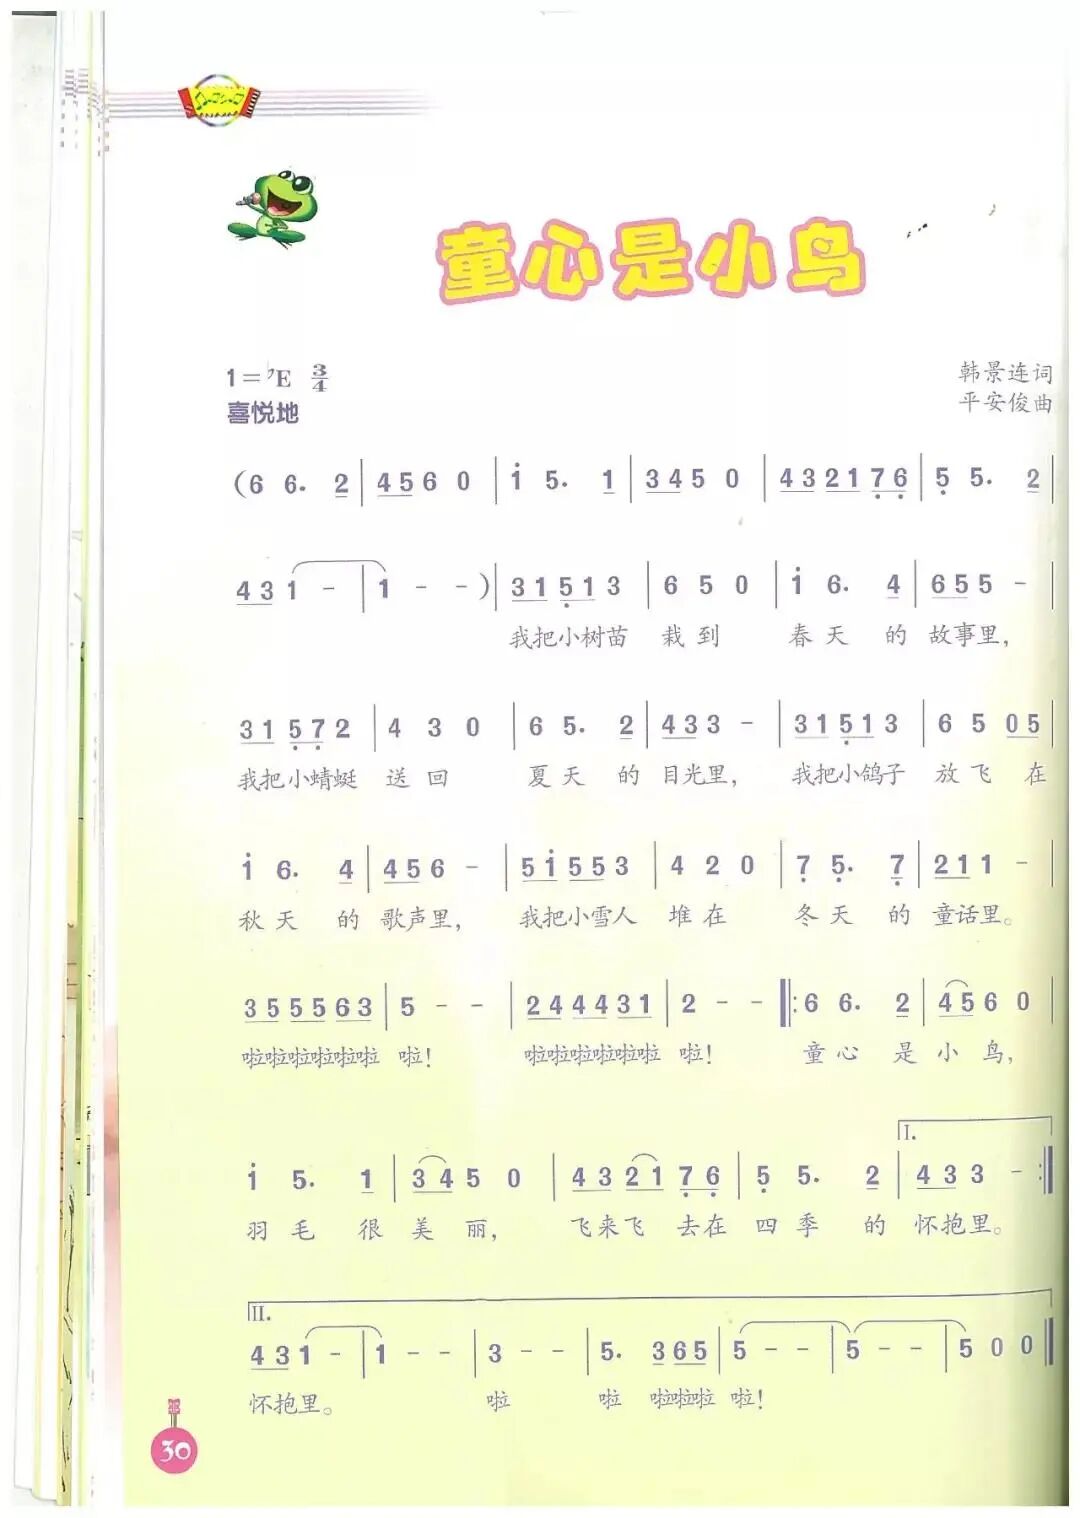 童心是小鸟
1=♭E 3/4
韩景连词
喜悦地
平安俊曲
(6 6. 2 | 4 5 6 0 | i 5. 1 | 3 4 5 0 | 4 3 2 1 7̣ 6̣ | 5̣ 5. 2 |
4 3 1 - | 1 - - ) | 3 1 5̣ 1 3 | 6 5 0 | i 6. 4 | 6 5 5 - |
我把小树苗 栽到 春天 的 故事里，
3 1 5̣ 7̣ 2 | 4 3 0 | 6 5. 2 | 4 3 3 - | 3 1 5̣ 1 3 | 6 5 0 5 |
我把小蜻蜓 送回 夏天 的 目光里， 我把小鸽子 放飞 在
i 6. 4 | 4 5 6 - | 5 i 5 5 3 | 4 2 0 | 7̣ 5̣. 7̣ | 2 1 1 - |
秋天 的 歌声里， 我把小雪人 堆在 冬天 的 童话里。
3 5 5 5 6 3 | 5 - - | 2 4 4 4 3 1 | 2 - - ‖: 6 6. 2 | 4 5 6 0 |
啦啦啦啦啦啦 啦！ 啦啦啦啦啦啦 啦！ 童心 是小鸟，
I.
i 5. 1 | 3 4 5 0 | 4 3 2 1 7̣ 6̣ | 5̣ 5. 2 | 4 3 3 - :‖
羽毛 很美丽， 飞来飞 去在 四季 的 怀抱里。
II.
4 3 1 - | 1 - - | 3 - - | 5. 3 6 5 | 5 - - | 5 - - | 5 0 0 ‖
怀抱里。 啦 啦 啦啦啦 啦！
30